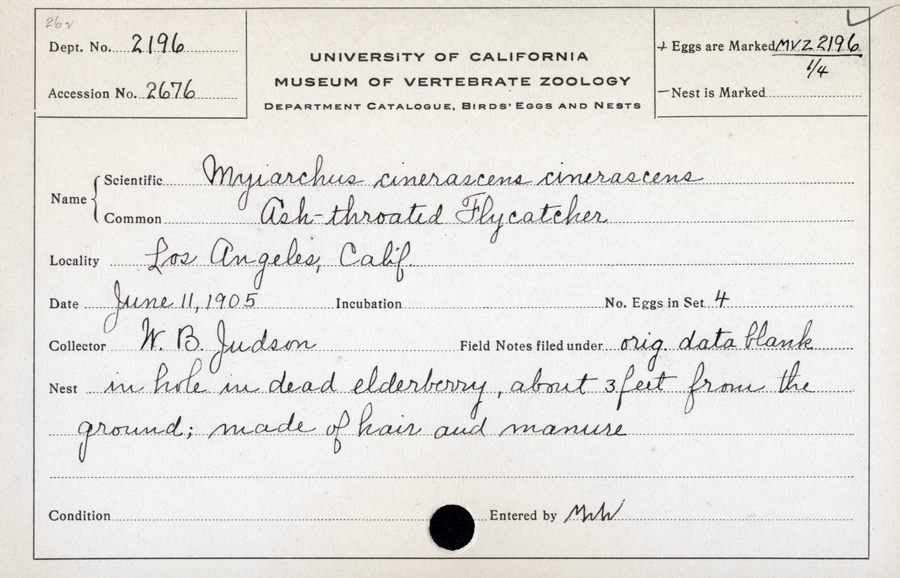 26v
Dept. No. 2196
Accession No. 2676
UNIVERSITY OF CALIFORNIA
MUSEUM OF VERTEBRATE ZOOLOGY
DEPARTMENT CATALOGUE, BIRDS' EGGS AND NESTS
+ Eggs are Marked MVZ 2196
1/4
— Nest is Marked
Name
Scientific Myiarchus cinerascens cinerascens
Common Ash-throated Flycatcher
Locality Los Angeles, Calif.
Date June 11, 1905 Incubation No. Eggs in Set 4
Collector W. B. Judson Field Notes filed under orig. data blank
Nest in hole in dead elderberry, about 3 feet from the
ground; made of hair and manure
Condition Entered by